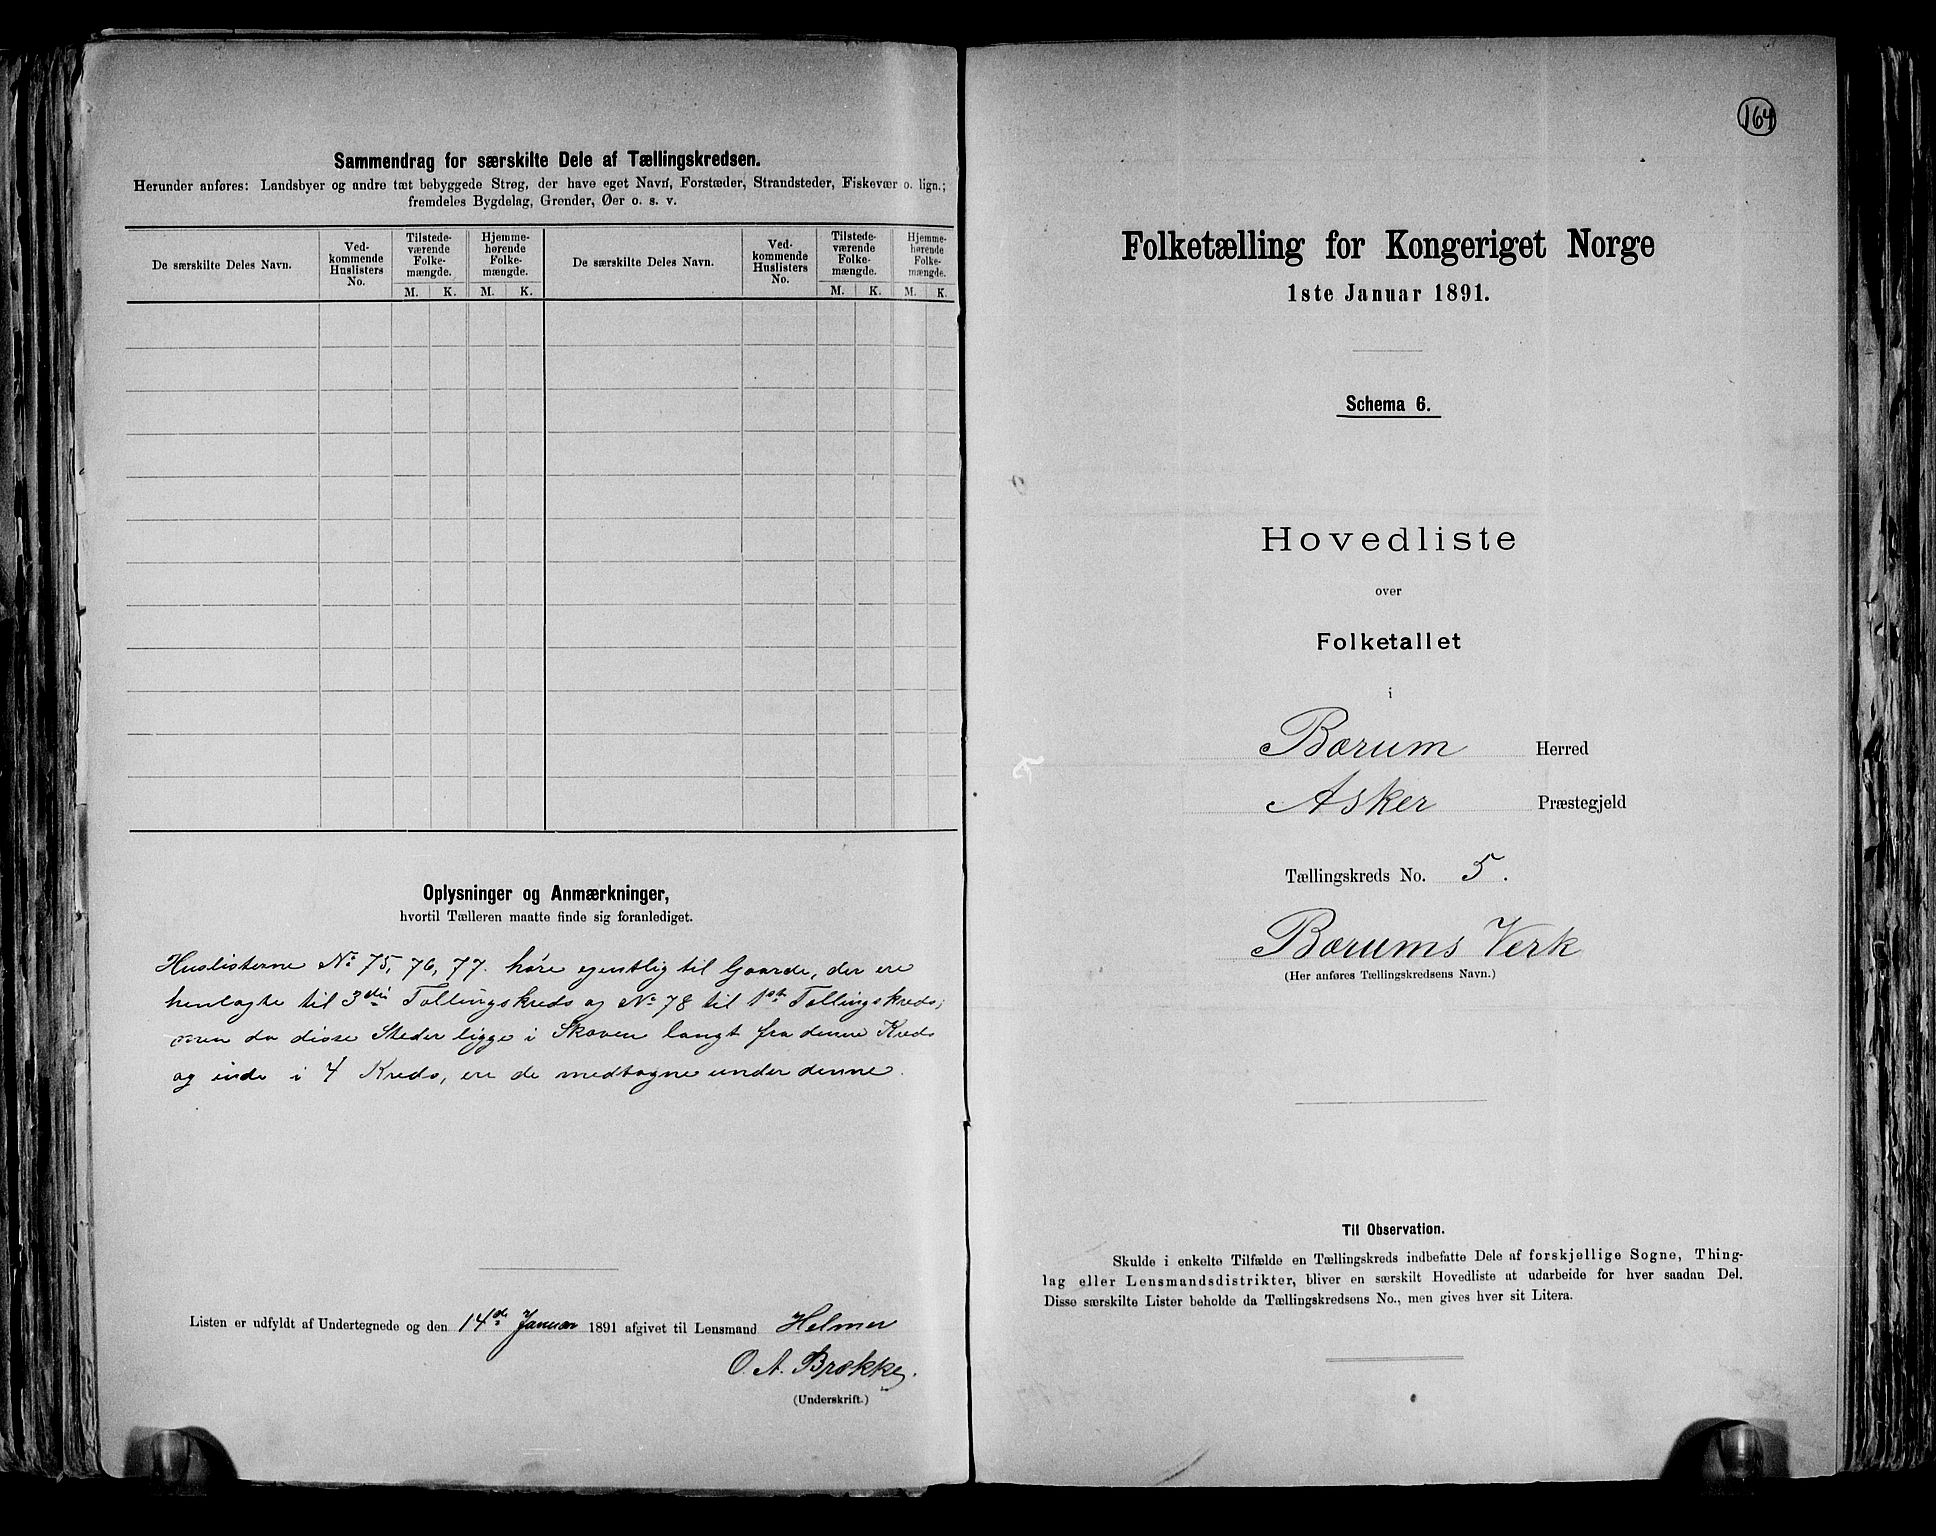 Sammendrag for særskilte Dele af Tællingskredsen.
Herunder anføres: Landsbyer og andre tæt bebyggede Strøg, der have eget Navn, Forstæder, Strandsteder, Fiskevær o. lign.;
fremdeles Bygdelag, Grender, Øer o. s. v.
De særskilte Deles Navn.
Ved-
kommende
Huslisters
No.
Tilstede-
værende
Folke-
mængde.
M. K.
Hjemme-
hørende
Folke-
mængde.
M. K.
De særskilte Deles Navn.
Ved-
kommende
Huslisters
No.
Tilstede-
værende
Folke-
mængde.
M. K.
Hjemme-
hørende
Folke-
mængde.
M. K.
Oplysninger og Anmærkninger,
hvortil Tælleren maatte finde sig foranlediget.
Huslisterne No. 75, 76, 77. høre egentlig til Gaarde, der ere
henlagte til 3die Tællingskreds og No 78 til 1ste Tællingskreds;
men da disse Steder ligge i Skoven langt fra denne Kreds
og inde i 4 Kreds, ere de medtagne under denne.
Listen er udfyldt af Undertegnede og den 14de Januar 1891 afgivet til Lensmand Helmer
O. A. Brække.
(Underskrift.)
164
Folketælling for Kongeriget Norge
1ste Januar 1891.
Schema 6.
Hovedliste
over
Folketallet
i
Bærum Herred
Asker Præstegjeld
Tællingskreds No. 5.
Bærums Verk
(Her anføres Tællingskredsens Navn.)
Til Observation.
Skulde i enkelte Tilfælde en Tællingskreds indbefatte Dele af forskjellige Sogne, Thing-
lag eller Lensmandsdistrikter, bliver en særskilt Hovedliste at udarbeide for hver saadan Del.
Disse særskilte Lister beholde da Tællingskredsens No., men gives hver sit Litera.